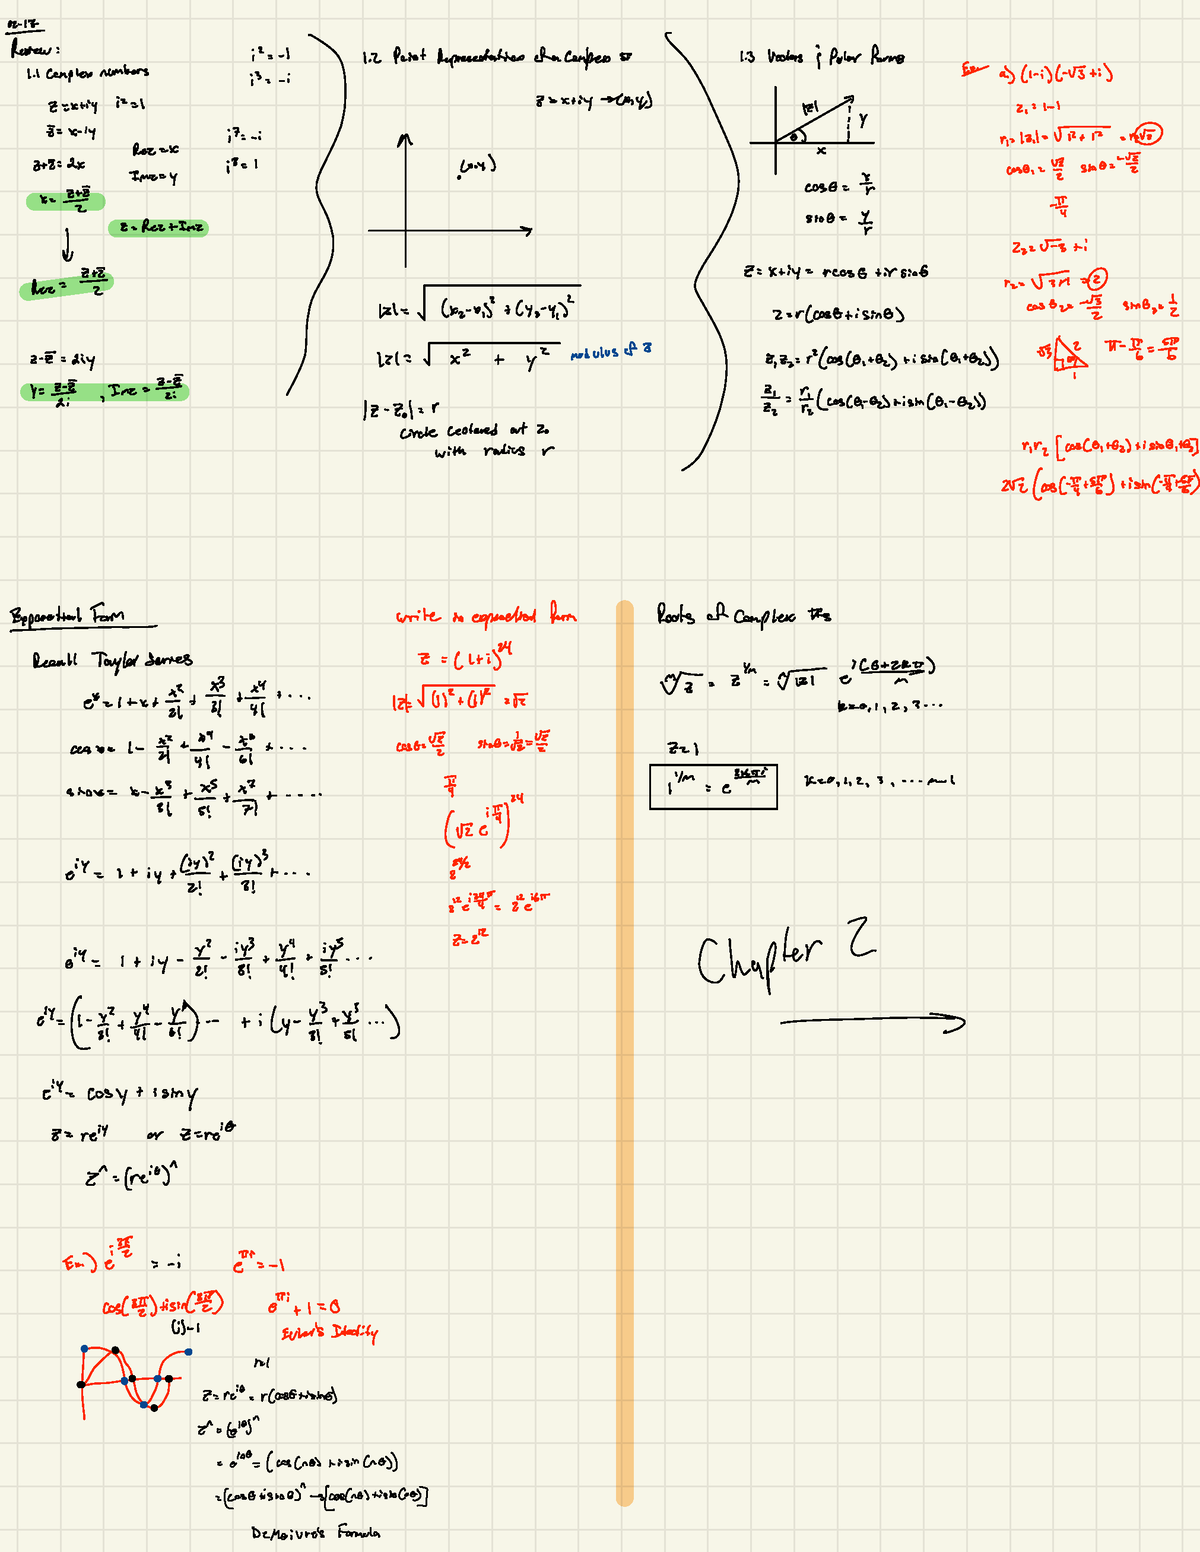 02-17
Review:
1.1 Complex numbers
z = x+iy  i²=1
z̄ = x-iy
z+z̄ = 2x
Rez = x
Imz = y
x = (z+z̄)/2
z = Rez + Imz
Rez = (z+z̄)/2
z-z̄ = 2iy
y = (z-z̄)/2i , Imz = (z-z̄)/2i
i² = -1
i³ = -i
i⁷ = -i
i⁸ = 1
1.2 Point Representation of a Complex #
z = x+iy → (x,y)
(x,y)
|z| = √((x₂-x₁)² + (y₂-y₁)²)
|z| = √(x² + y²)  modulus of z
|z-z₀| = r
circle centered at z₀
with radius r
1.3 Vectors & Polar Forms
|z|
θ
x
y
cosθ = x/r
sinθ = y/r
z = x+iy = rcosθ + ir sinθ
z = r(cosθ + i sinθ)
z₁z₂ = r²(cos(θ₁+θ₂) + i sin(θ₁+θ₂))
z₁/z₂ = r₁/r₂ (cos(θ₁-θ₂) + i sin(θ₁-θ₂))
Ex. a) (1-i)(-√3+i)
z₁ = 1-i
r₁ = |z₁| = √(1²+1²) = √2
cosθ₁ = √2/2  sinθ = -√2/2
-π/4
z₂ = √-3 + i
r₂ = √(3+1) = 2
cosθ₂ = -√3/2  sinθ₂ = 1/2
√3  2  1
π - π/6 = 5π/6
r₁r₂ [cos(θ₁+θ₂) + i sinθ₁+θ₂]
2√2 (cos(-π/4 + 5π/6) + i sin(-π/4 + 5π/6)
Exponential Form
Recall Taylor Series
eˣ = 1 + x + x²/2! + x³/3! + x⁴/4! + ...
cos x = 1 - x²/2! + x⁴/4! - x⁶/6! + ...
sin x = x - x³/3! + x⁵/5! + x⁷/7! + ....
e^{iy} = 1 + iy + (iy)²/2! + (iy)³/3! + ...
e^{iy} = 1 + iy - y²/2! - iy³/3! + y⁴/4! + iy⁵/5! ...
e^{iy} = (1 - y²/2! + y⁴/4! - y⁶/6!) ... + i(y - y³/3! + y⁵/5! ...)
e^{iy} = cosy + i siny
z = re^{iy}  or  z = re^{iθ}
zⁿ = (re^{iθ})ⁿ
Ex.) e^{i3π/2} = -i  e^{πi} = -1
cos(3π/2) + i sin(3π/2)
(i)-1
e^{πi} + 1 = 0
Euler's Identity
r=1
z = re^{iθ} = r(cosθ + i sinθ)
zⁿ = (e^{iθ})ⁿ
= e^{inθ} = (cos(nθ) + i sin(nθ))
= (cosθ + i sinθ)ⁿ → [cos(nθ) + i sin(nθ)]
DeMoivre's Formula
write in exponential form
z = (1+i)²⁴
|z| = √((1)² + (1)²) = √2
cosθ = √2/2  sinθ = 1/√2 = √2/2
π/4
(√2 e^{iπ/4})²⁴
2^{24/2}
2¹² e^{i24π/4} = 2¹² e^{i6π}
z = 2¹²
Roots of Complex #s
ᵐ√z = z^{1/m} = ᵐ√|z| e^{i(θ+2kπ)/m}
k = 0, 1, 2, 3...
z = 1
1^{1/m} = e^{2kπi/m}  k = 0, 1, 2, 3, .... m-1
Chapter 2